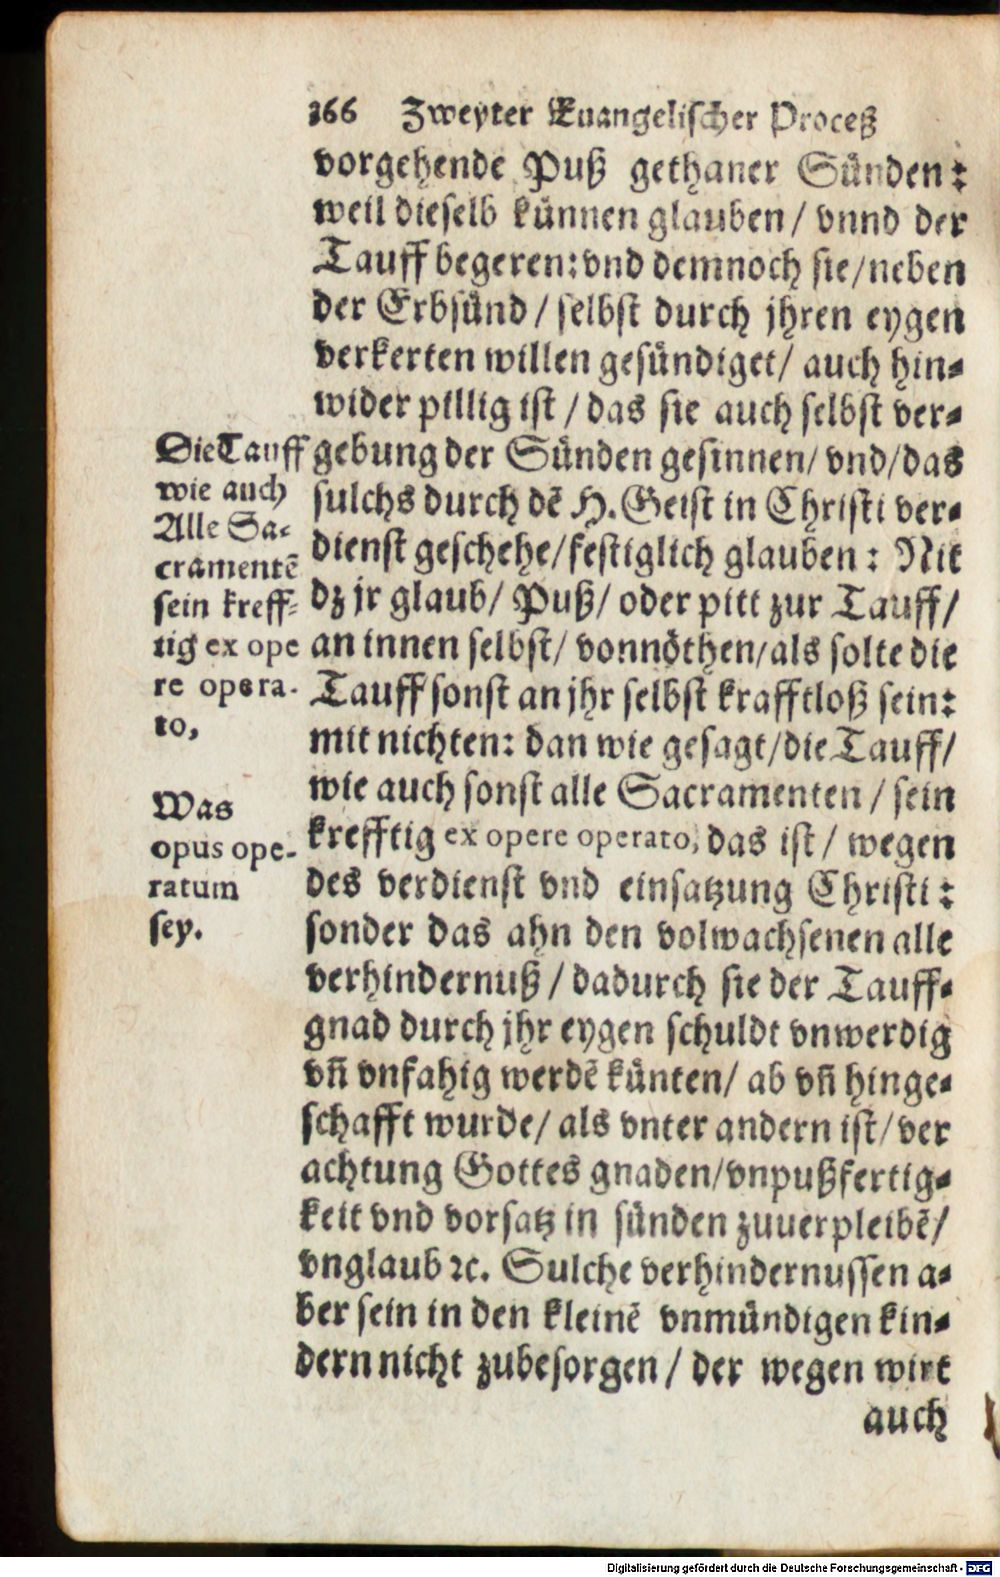 366 Zweyter Euangelischer Proceß
vorgehende Puß gethaner Sünden:
weil dieselb künnen glauben / vnnd der
Tauff begeren: vnd demnoch sie / neben
der Erbsünd / selbst durch jhren eygen
verkerten willen gesündiget / auch hin-
wider pillig ist / das sie auch selbst ver-
gebung der Sünden gesinnen / vnd / das
sulchs durch dē H. Geist in Christi ver-
dienst geschehe / festiglich glauben: Nit
dz jr glaub / Puß / oder pitt zur Tauff /
an innen selbst / vonnöthen / als solte die
Tauff sonst an jhr selbst krafftloß sein:
mit nichten: dan wie gesagt / die Tauff /
wie auch sonst alle Sacramenten / sein
krefftig ex opere operato, das ist / wegen
des verdienst vnd einsatzung Christi:
sonder das ahn den volwachsenen alle
verhindernuß / dadurch sie der Tauff-
gnad durch jhr eygen schuldt vnwerdig
vñ vnfahig werdē künten / ab vñ hinge-
schafft wurde / als vnter andern ist / ver
achtung Gottes gnaden / vnpußfertig-
keit vnd vorsatz in sünden zuuerpleibē /
vnglaub ꝛc. Sulche verhindernussen a-
ber sein in den kleinē vnmündigen kin-
dern nicht zubesorgen / der wegen wirt
auch
Die Tauff
wie auch
Alle Sa-
cramentē
sein kreff-
tig ex ope
re opera-
to,
Was
opus ope-
ratum
sey.
Digitalisierung gefördert durch die Deutsche Forschungsgemeinschaft - DFG